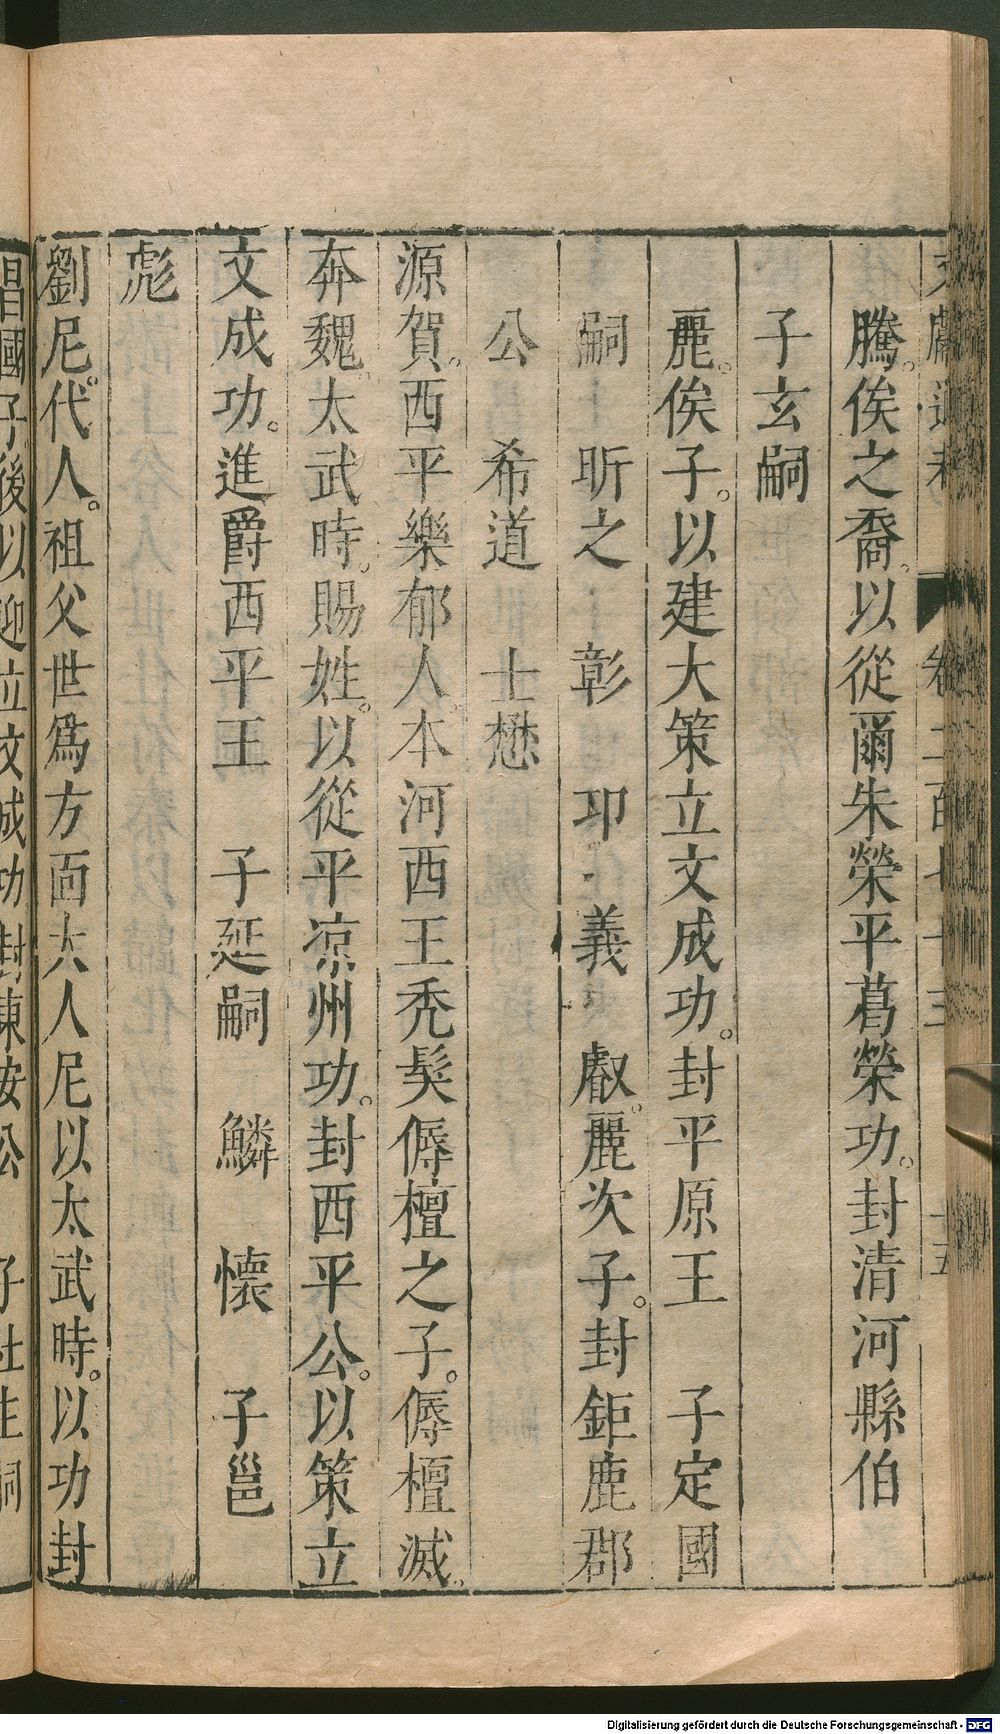 文獻通考 卷二百七十三 十五
騰。俟之裔。以從爾朱榮平葛榮功。封清河縣伯
子玄嗣
麗。俟子。以建大策立文成功。封平原王 子定國
嗣 昕之 彰 卭 義 叡。麗次子。封鉅鹿郡
公 希道 士懋
源賀。西平樂郁人。本河西王禿髮傉檀之子。傉檀滅。
奔魏。太武時。賜姓。以從平凉州功。封西平公。以策立
文成功。進爵西平王 子延嗣 鱗 懷 子邕
彪
劉尼。代人。祖父世爲方面大人尼以太武時。以功封
昌國子。後以迎立文成功封東安公 子社生嗣
Digitalisierung gefördert durch die Deutsche Forschungsgemeinschaft - DFG